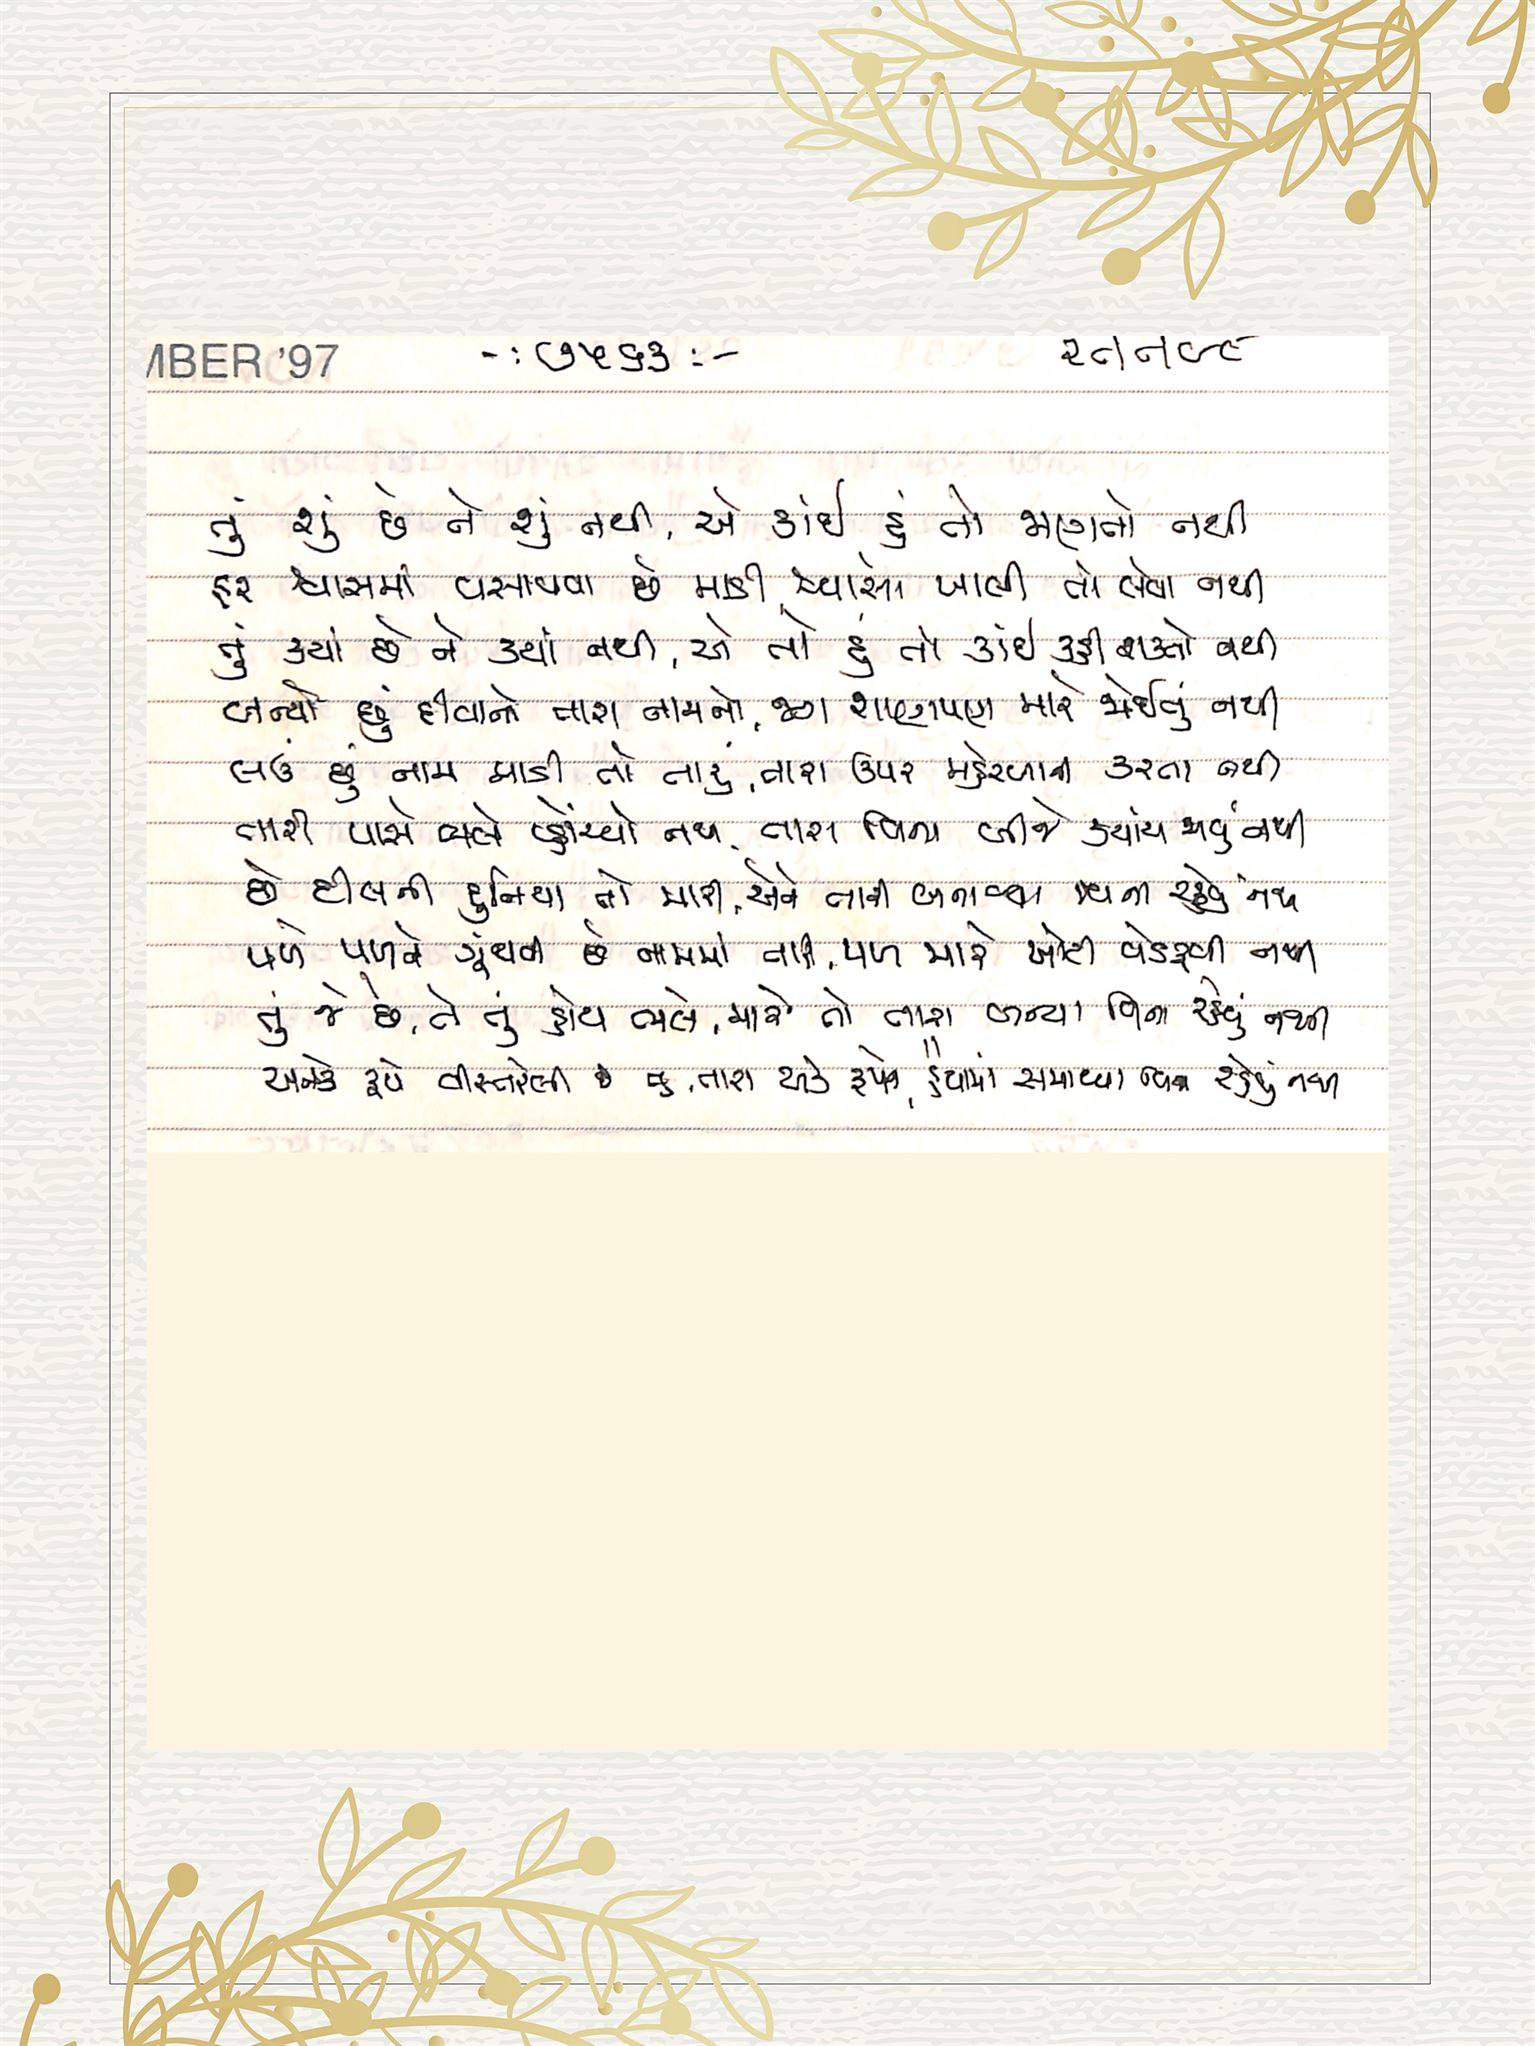 MBER '97 -: ૭૫૬૩ :-
તું શું છે ને શું નથી, એ કાંઈ હું તો જાણતો નથી
હર શ્વાસમાં વસાવવા છે માડી, શ્વાસો ખાલી તો લેવા નથી
તું ક્યાં છે ને ક્યાં નથી, એ તો હું તો કાંઈ કહી શક્તો નથી
બન્યો છું દીવાનો તારા નામનો, શાણપણ મારે જોઈતું નથી
લઉં છું નામ માડી તો તારું, તારા ઉપર મહેરબાની કરતા નથી
તારી પાસે ભલે પ્હોંચ્યો નથી, તારા વિના બીજે ક્યાંય જાવું નથી
છે દીલની દુનિયા તો મારી, એને તારી બનાવ્યા વિના રહેવું નથી
પળે પળને ગૂંથવી છે નામમાં તારી, પળ મારે ખોટી વેડફવી નથી
તું જે છે, તે તું હોય ભલે, મારે તો તારા બન્યા વિના રહેવું નથી
અનેક રૂપે વીસ્તરેલી છે તું, તારા એક રૂપને, હૈયામાં સમાવ્યા વિના રહેવું નથી